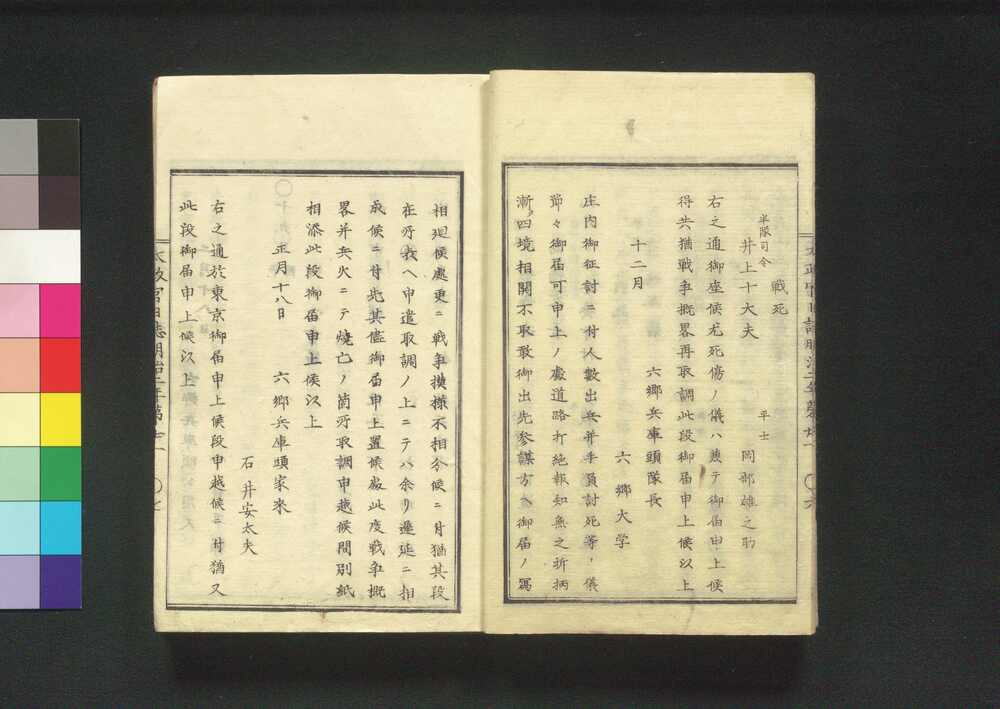 戦死
半隊司令
井上十大夫
平士
岡部雄之助
右之通御座候尤死傷ノ儀ハ兼テ御届申上候
得共猶戦争概畧再取調此段御届申上候以上
六郷兵庫頭隊長
十二月
六郷大学
庄内御征討ニ付人数出兵并手負討死等ノ儀
節々御届可申上ノ處道路打絶報知無之折柄
漸ク四境相開不取敢御出先参謀方ヘ御届ノ冩
相廻候處更ニ戦争摸様不相分候ニ付猶其段
在所表ヘ申遣取調ノ上ニテハ余リ遷延ニ相
成候ニ付先其儘御届申上置候處此度戦争概
畧并兵火ニテ焼亡ノ箇所取調申越候間別紙
相添此段御届申上候以上
正月十八日
六郷兵庫頭家来
石井安太夫
右之通於東京御届申上候段申越候ニ付猶又
此段御届申上候以上
太政官日誌明治二年第
〇七